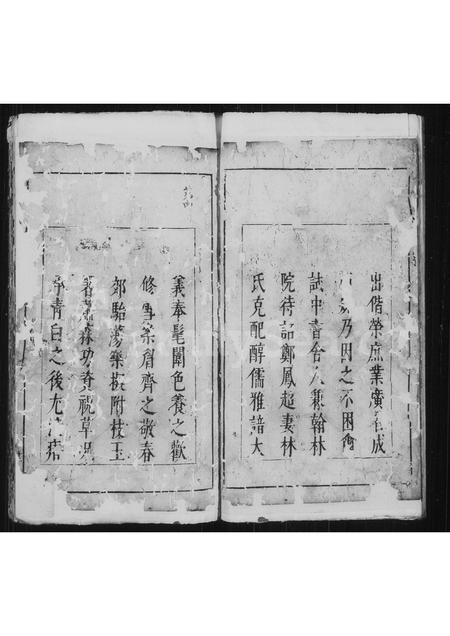 出偕榮庶業廣成
乃因之不困
試中書舍人兼翰林
院待詔鄭鳳超妻林
氏克配醇儒雅諳大
義奉髦闈色養之歡
修雪案眉齊之敬春
郊駘蕩樂樹附枝玉
森功奏視草
青白之後尤